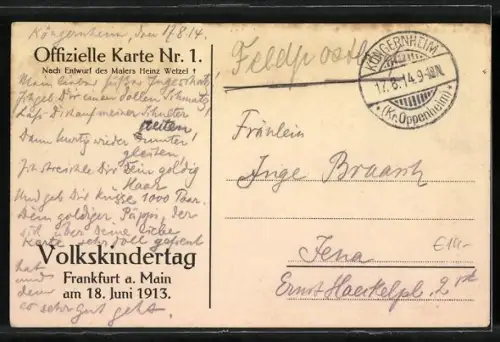 Köngernheim, den 17.8.14.
Offizielle Karte Nr. 1.
Nach Entwurf des Malers Heinz Wetzel †
Mein lieber süßer Ingeschatz!
Ich geb Dir einen dollen Schmatz,
Laß Dich auf meiner Schulter
reiten,
Dann hurtig wieder runter
gleiten,
Ich streichle Dir Dein goldig
Haar
Und geb Dir Küsse 1000 Paar.
Dein goldiger Pappi, der
sich über Deine liebe
Karte sehr doll gefreut
hat
und
dem
es sehr gut geht.
Volkskindertag
Frankfurt a. Main
am 18. Juni 1913.
Feldpost
KÖNGERNHEIM
17.8.14.9-10.N.
*(Kr. Oppenheim)*
Fräulein
Inge Braasch
Jena
Ernst Haeckelpl. 2
€14.-